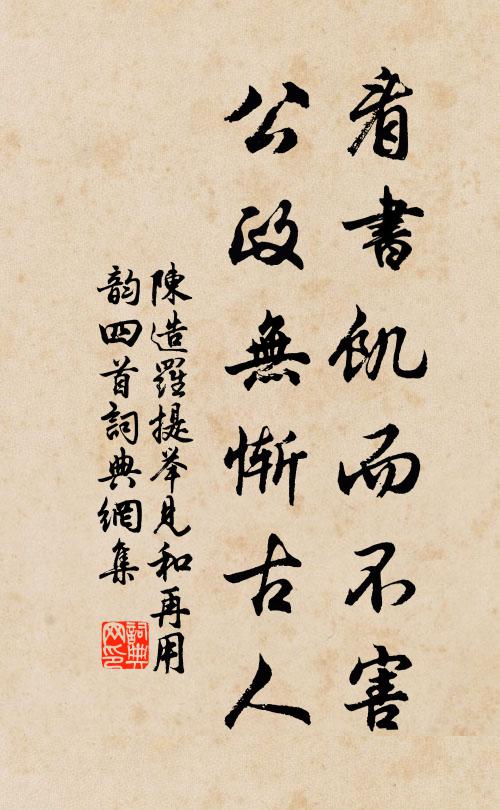 看書飢而不害
公政無慚古人
陳造羅提舉見和再用
韵四首詞典網集
詞典
网印